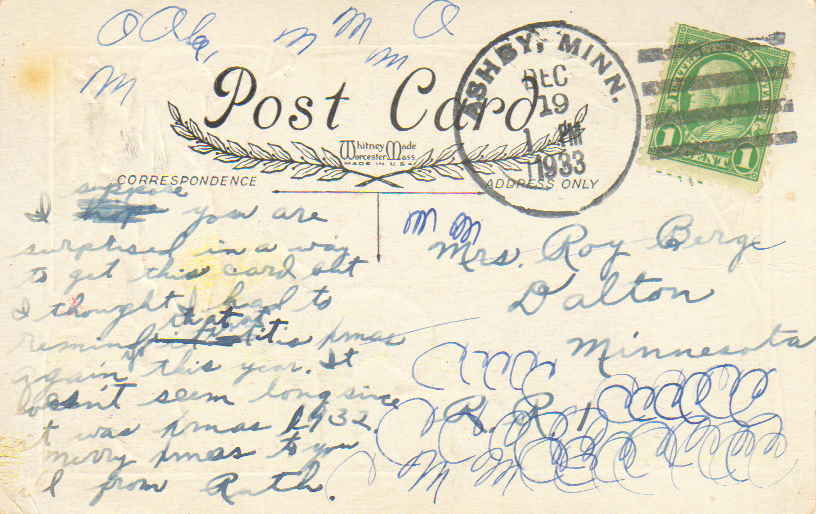 O
M M O
M M
Post Card
Whitney Made
Worcester Mass.
MADE IN U.S.A.
CORRESPONDENCE
ADDRESS ONLY
ASHBY, MINN.
DEC
19
1 PM
1933
UNITED STATES POSTAGE
1 CENT 1
suppose
I hope you are
surprised in a way
to get this card but
I thought I had to
that
remind it is xmas
again this year. It
doesn't seem long since
it was xmas 1932.
Merry xmas to you
all from Ruth.
m m
Mrs. Roy Berge
Dalton
Minnesota
R. R. 1
M M